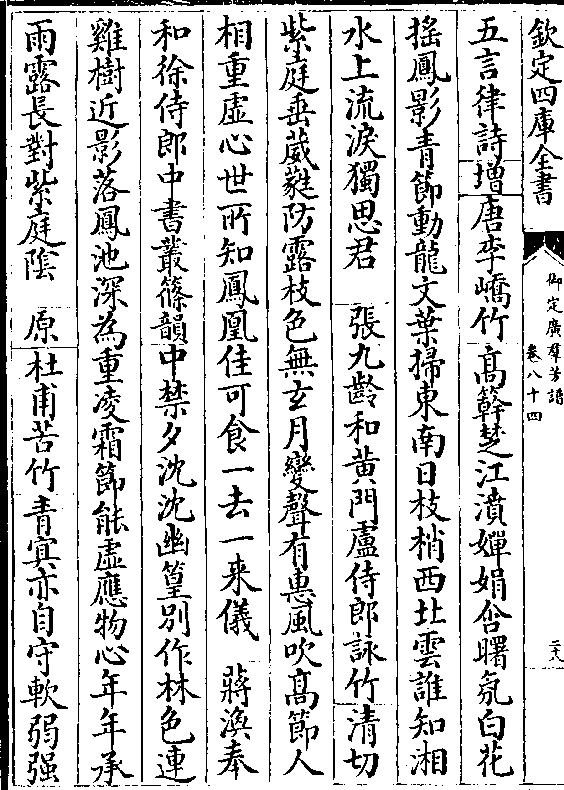 欽定四庫全書
御定廣羣芳譜
卷八十四
二十八
五言律詩増唐李嶠竹高簳楚江濆嬋娟含曙氛白花
揺鳳影青節動龍文葉掃東南日枝梢西北雲誰知湘
水上流淚獨思君　張九齡和黄門盧侍郎詠竹清切
紫庭垂葳蕤防露枝色無玄月變聲有惠風吹高節人
相重虛心世所知鳳凰佳可食一去一来儀　蔣渙奉
和徐侍郎中書叢篠韻中禁夕沈沈幽篁別作林色連
雞樹近影落鳳池深為重凌霜節能虛應物心年年承
雨露長對紫庭隂　原杜甫苦竹青冥亦自守軟弱强